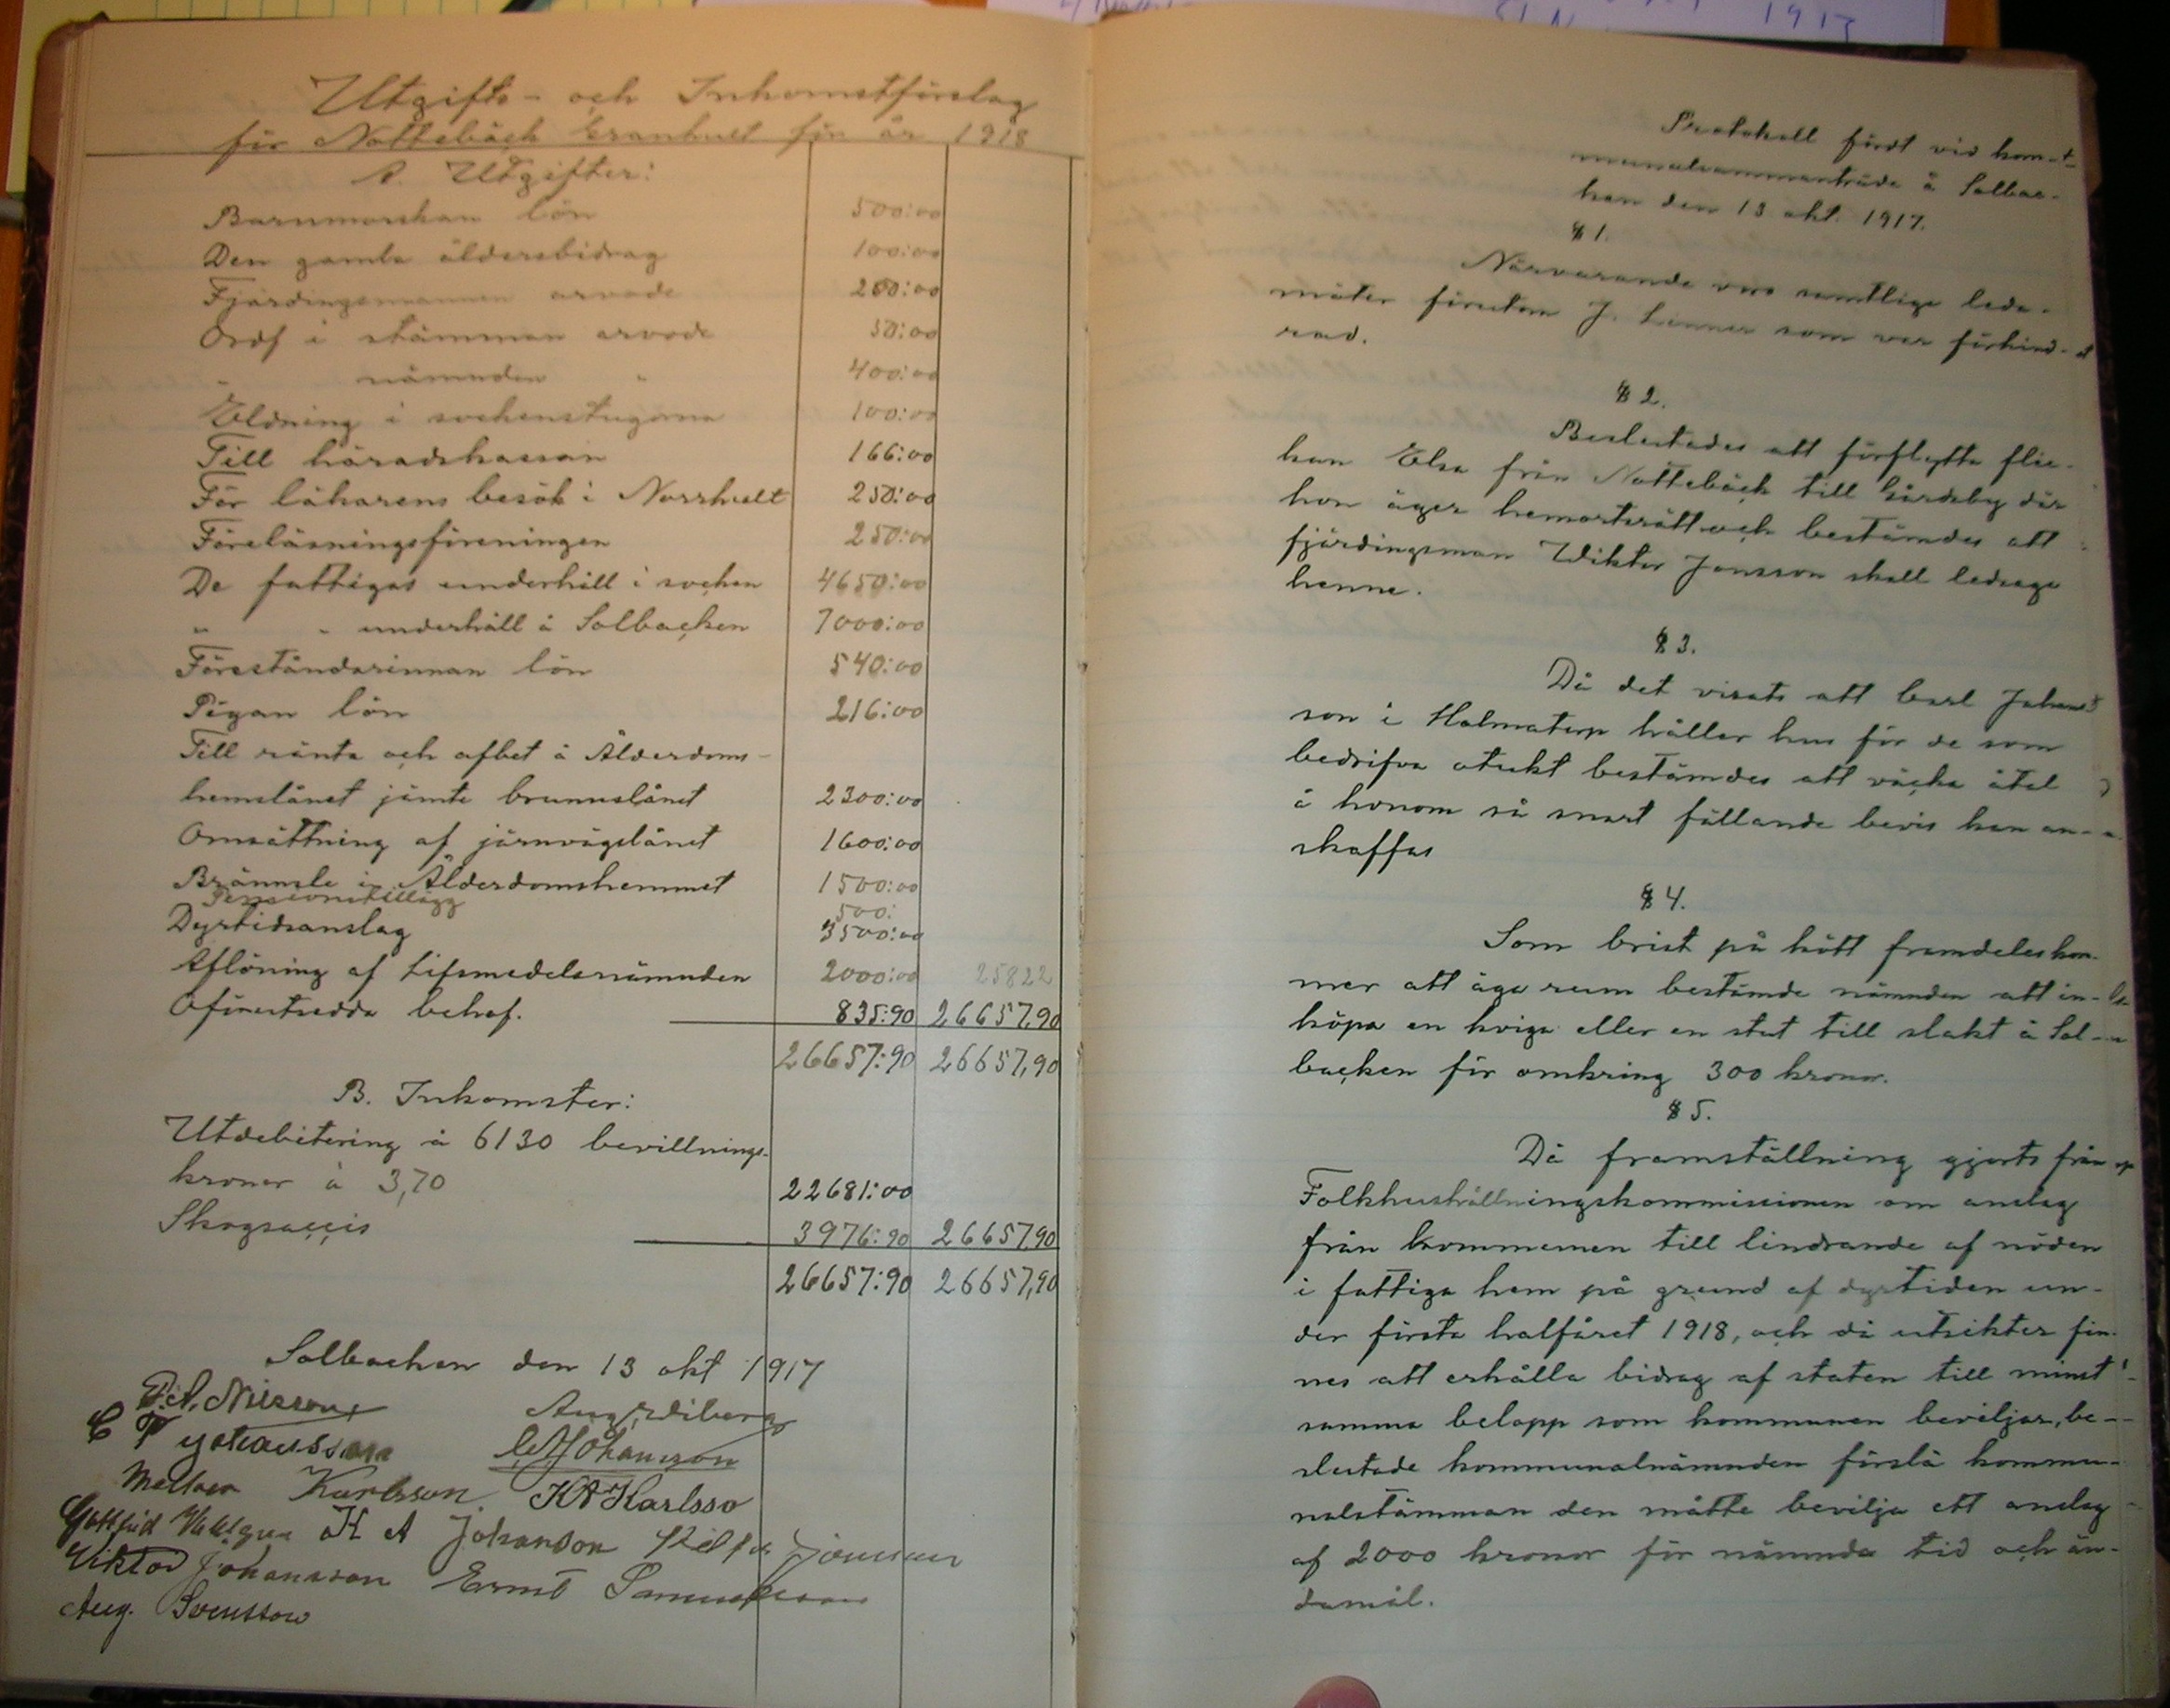 1917
Utgifts- och Inkomstförslag
för Nottebäck Granhult för år 1918
A. Utgifter:
Barnmorskan lön 500:00
Den gamla åldersbidrag 100:00
Fjärdingsmannen arvode 200:00
Ordf i stämman arvode 50:00
" nämnden " 400:00
Eldning i sockenstugorna 100:00
Till häradskassan 166:00
För läkarens besök i Norrhult 250:00
Föreläsningsföreningen 250:00
De fattigas underhåll i socken 4650:00
" " underhåll å Solbacken 7000:00
Föreståndarinnan lön 540:00
Pigan lön 216:00
Till ränta och afbet å Ålderdoms-
hemslånet jämte brunnslånet 2300:00
Omsättning af järnvägslånet 1600:00
Brännsle i Ålderdomshemmet 1500:00
Pensionstillägg 500:
Dyrtidsanslag 3500:00
Aflöning af Lifsmedelsnämnden 2000:00 25822
Oförutsedda behof. 835:90 26657,90
26657:90 26657,90
B. Inkomster:
Utdebitering å 6130 bevillnings-
kronor à 3,70 22681:00
Skogsaccis 3976:90 26657,90
26657:90 26657,90
Solbacken den 13 okt 1917
P.A. Nilsson Aug. Wiberg
C P Johansson C A Johansson
Karlsson. K A Karlsso
Gottfrid H A Johanson
Viktor Johansson Ernst Samuelsson
Aug. Svensson
Protokoll fördt vid kom-
munalsammanträde å Solbac-
ken den 13 okt. 1917.
§ 1.
Närvarande voro samtlige leda-
möter förutom J. Linner som var förhind-
rad.
§ 2.
Beslutades att förflytta flic-
kan Elsa från Nottebäck till Gårdsby där
hon äger hemortsrätt och bestämdes att
fjärdingsman Wiktor Jonsson skall ledsaga
henne.
§ 3.
Då det visats att Carl Johans
son i Holmatorp håller hus för de som
bedrifva otukt bestämdes att väcka åtal
å honom så snart fällande bevis kan an-
skaffas
§ 4.
Som brist på kött framdeles kom-
mer att äga rum bestämde nämnden att in-
köpa en kviga eller en stut till slakt å Sol-
backen för omkring 300 kronor.
§ 5.
Då framställning gjorts från
Folkhushållningskommissionen om anslag
från kommunen till lindrande af nöden
i fattiga hem på grund af dyrtiden un-
der första halfåret 1918, och då utsikter fin-
nes att erhålla bidrag af staten till minst
samma belopp som kommunen beviljar, be-
slutade kommunalnämnden föreslå kommu-
nalstämman den måtte bevilja ett anslag
af 2000 kronor för nämnda tid och än-
damål.